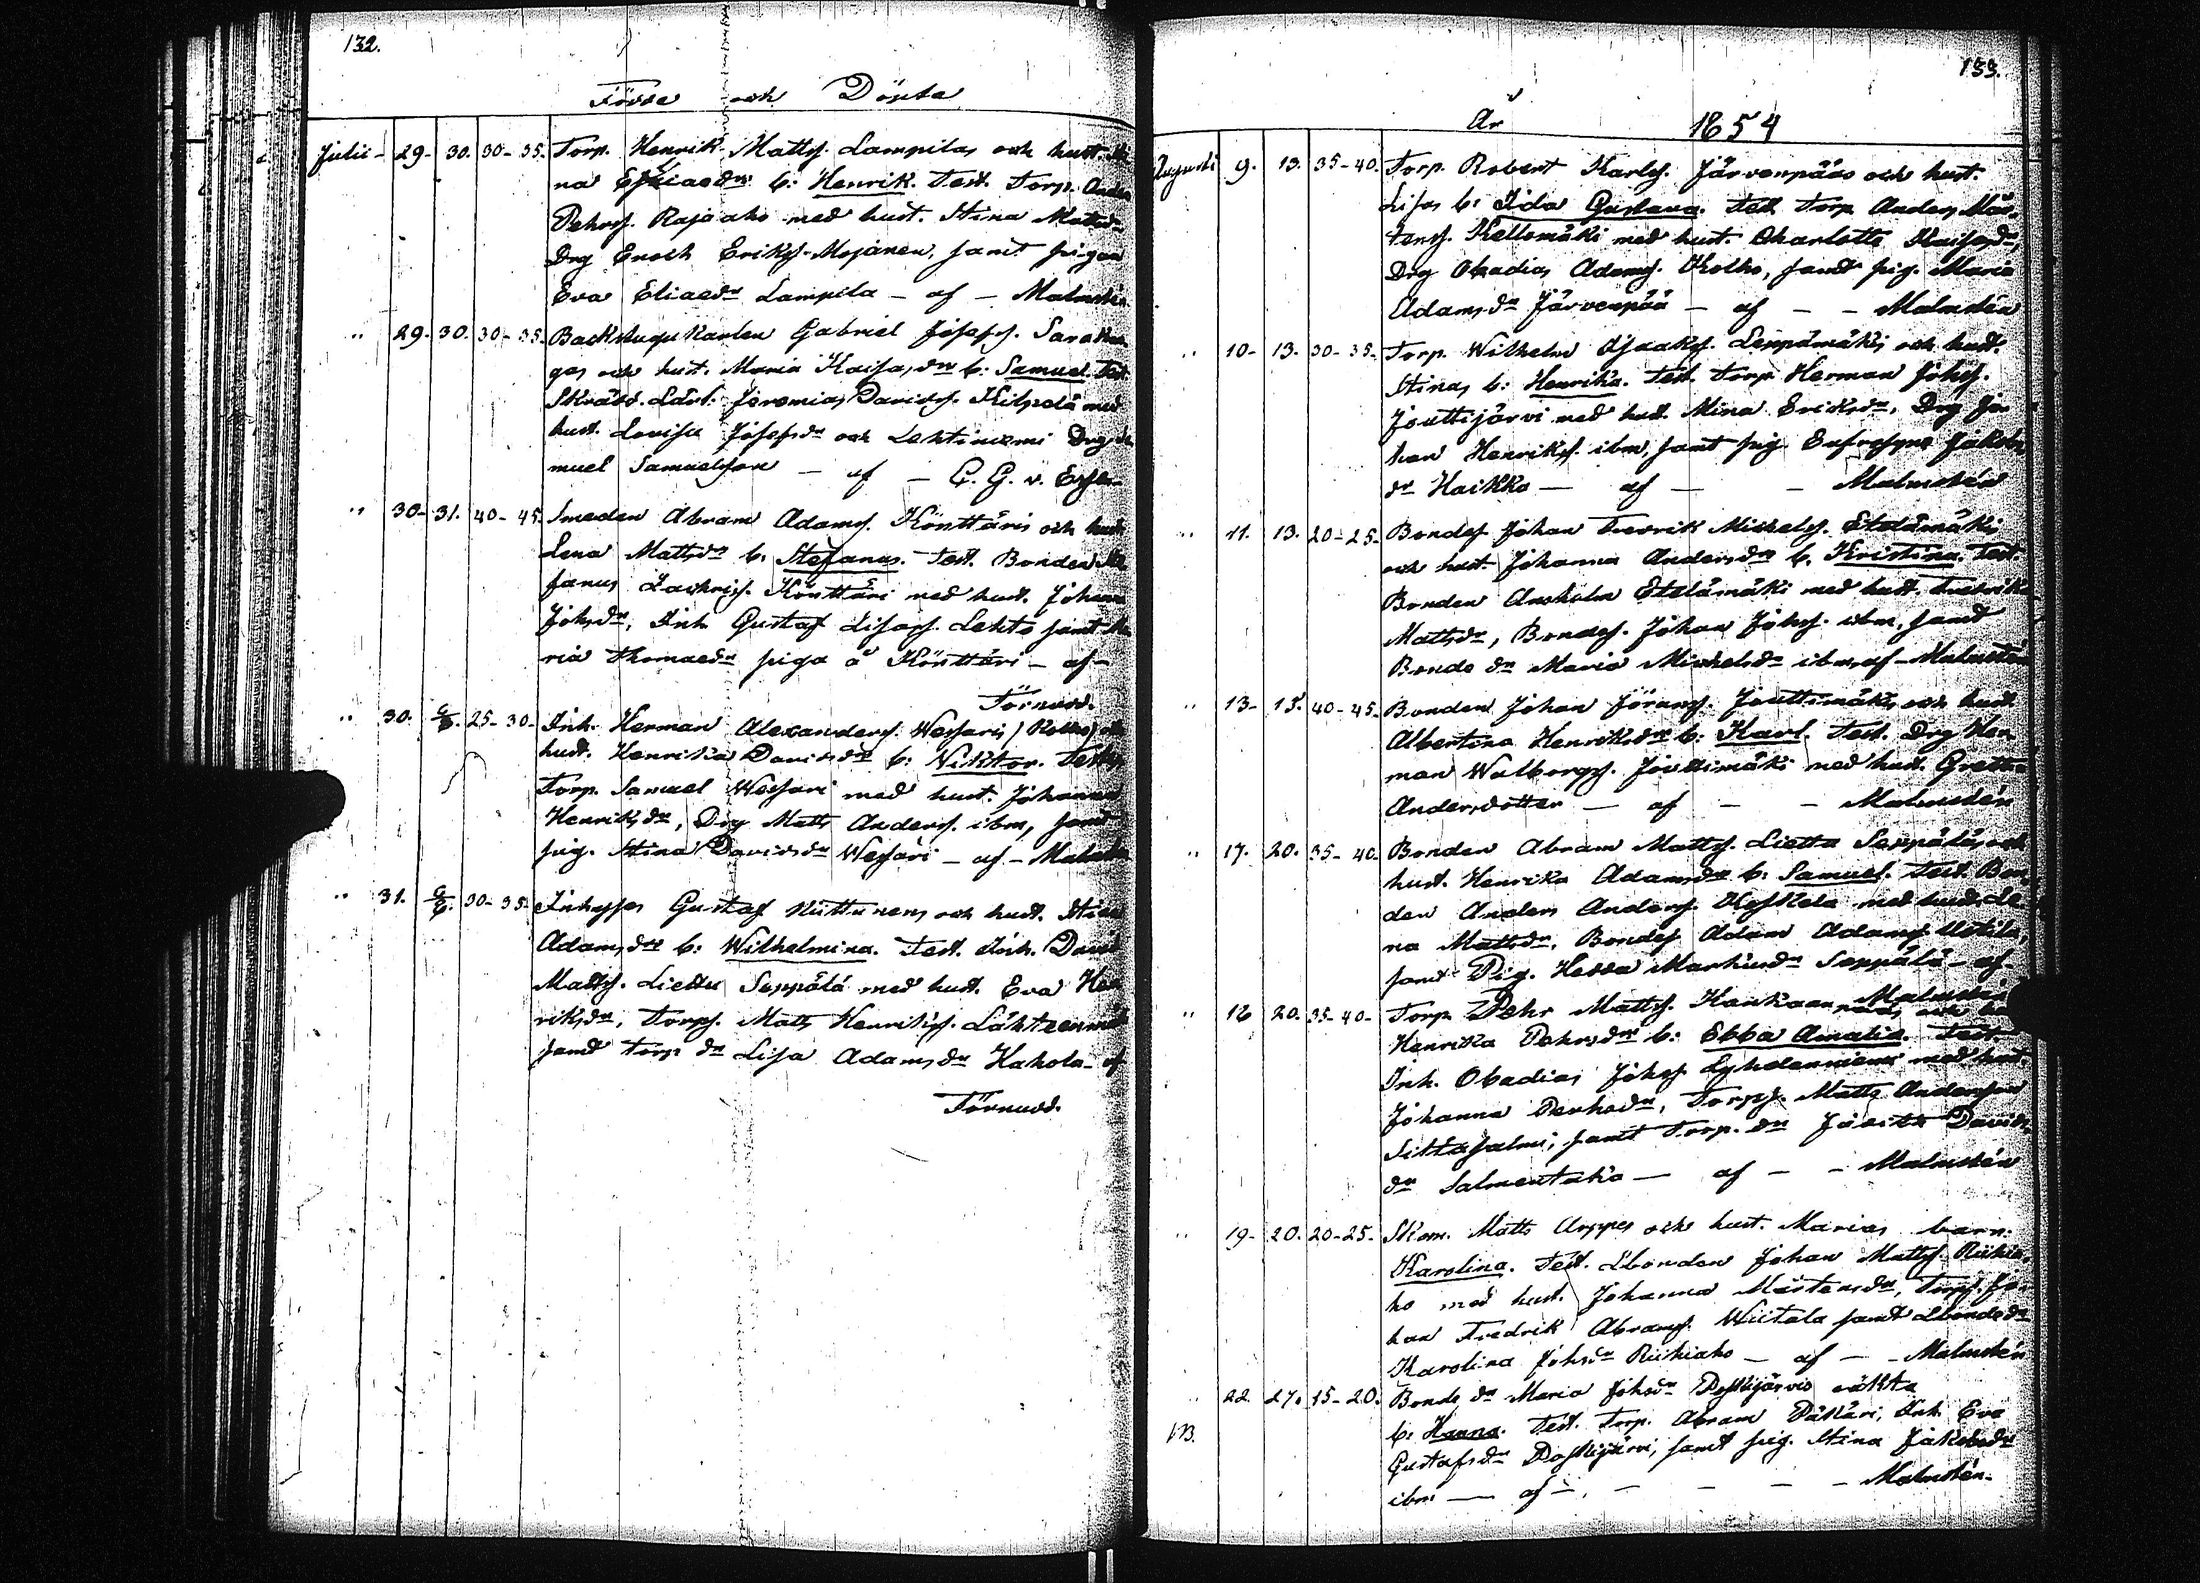 132.
Födde och Döpta
Julii - 29. 30. 30-35. Torp. Henrik Mattss. Lampilas och hust. Sti
na Eliaedr b: Henrik. Test. Torp. Anders
Pehrss. Rajaaho med hust. Stina Mattsdr
Drg Enoch Erikss. Mojanen, samt pigan
Eva Eliaedr Lampila - af - Malmstén
" 29. 30. 30-35. Backstugukarlen Gabriel Josefss. Sarakan
gas och hust. Maria Kaisasdr b: Samuel. Test.
Skrädd. Lärl. Jeremias Davidss. Kilpelä med
hust. Lovisa Josefsdr och Lehtiniemi Drg Sa
muel Samuelsson - af - C. G. v. Essen
30. 31. 40-45. Smeden Abram Adamss. Könttäris och hust.
Lena Mattsdr b. Stefanus. Test. Bonden Ste
fanus Zachriss. Könttäri med hust. Johanna
Johsdr, Inh. Gustaf Lisass. Lehto samt Ma
ria Thomaedr piga å Könttäri - af -
Törnudd.
" 30. 6/8. 25-30. Inh. Herman Alexanderss. Wessaris och
hust. Henrika Davidsdr b: Wiktor. Test.
Torp. Samuel Wessari med hust. Johanna
Henriksdr, Drg Matts Anderss. ibm, samt
pig. Stina Davidsdr Wessari - af - Malmstén
" 31. 6/8. 30-35. Inhyses Gustaf Kuttunens och hust. Stina
Adamsdr b: Wilhelmina. Test. Inh. David
Mattss. Liettu Seppälä med hust. Eva Hen
riksdr, Torps. Matts Henrikss. Lähteenmäki
samt Torp dr Lisa Adamsdr Kahola - af
Törnudd.
133.
År 1854
Augusti 9. 13. 35-40. Torp. Robert Karlss. Järvenpääs och hust.
Lisas b: Ida Gustava. Test. Torp Anders Mår
tenss. Kellomäki med hust. Charlotta Kaisasdr,
Drg Obadias Adamss. Kolho, samt pig. Maria
Adamsdr Järvenpää - af - - Malmstén
" 10- 13. 30-35. Torp. Wilhelm Isaakss. Leppämäkis och hust.
Stinas b: Henrika. Test. Torp Herman Johss.
Jouttijärvi med hust. Mina Eriksdr, Drg Jo
han Henrikss. ibm, samt pig Eufrosyne Jakobs
dr Haikko - af - - Malmstén
" 11. 13. 20-25. Bondes. Johan Fredrik Michelss. Etelämäkis
och hust. Johanna Andersdr b. Kristina. Test.
Bonden Anshelm Etelämäki med hust. Fredrika
Mattsdr, Bondes. Johan Johss. ibm, samt
Bonde dr Maria Michelsdr ibm, af - Malmstén
" 13- 15. 40-45. Bonden Johan Jöranss. Jouttimäkis och hust.
Albertina Henriksdr b: Karl. Test. Drg Her
man Walborgss. Jouttimäki med hust. Greta
Andersdotter - af - - Malmstén
" 17. 20. 35-40. Bonden Abram Mattss. Lietta Seppäläs och
hust. Henrika Adamsdr b: Samuel. Test. Bon
den Anders Anderss. Keskela med hust. Le
na Mattsdr, Bondes Adam Adamss. Uotila,
samt Pig. Hedda Markusdr Seppälä - af -
Malmstén
" 18 20. 35-40- Torp. Pehr Mattss. Kankaanpääs och hust.
Henrika Pehrsdr b: Ebba Amalia. Test.
Inh. Obadias Johss Lyhdenniemi med hust.
Johanna Pehrsdr, Torps. Matts Andersson
Siltasalmi, samt Torp. dr Javita Davids
dr Salmentaka - af - - Malmstén
" 19- 20. 20-25- Skom. Matts Arppes och hust. Marias barn:
Karolina. Test. Lbonden Johan Mattss. Riihia
ho med hust. Johanna Mårtensdr, Torps. Jo
han Fredrik Abramss. Wiitala samt Lbonde dr
Karolina Johsdr Riihiaho - af - - Malmstén
" 22. 27. 15-20. Bonde dr Maria Johsdr Poskijärvis oäkta
NB. b: Hanna. Test. Torp. Abram Pääkäri, Inh. Eva
Gustafsdr Poskijärvi, samt pig. Stina Jakobsdr
ibm - af - - - - Malmstén.